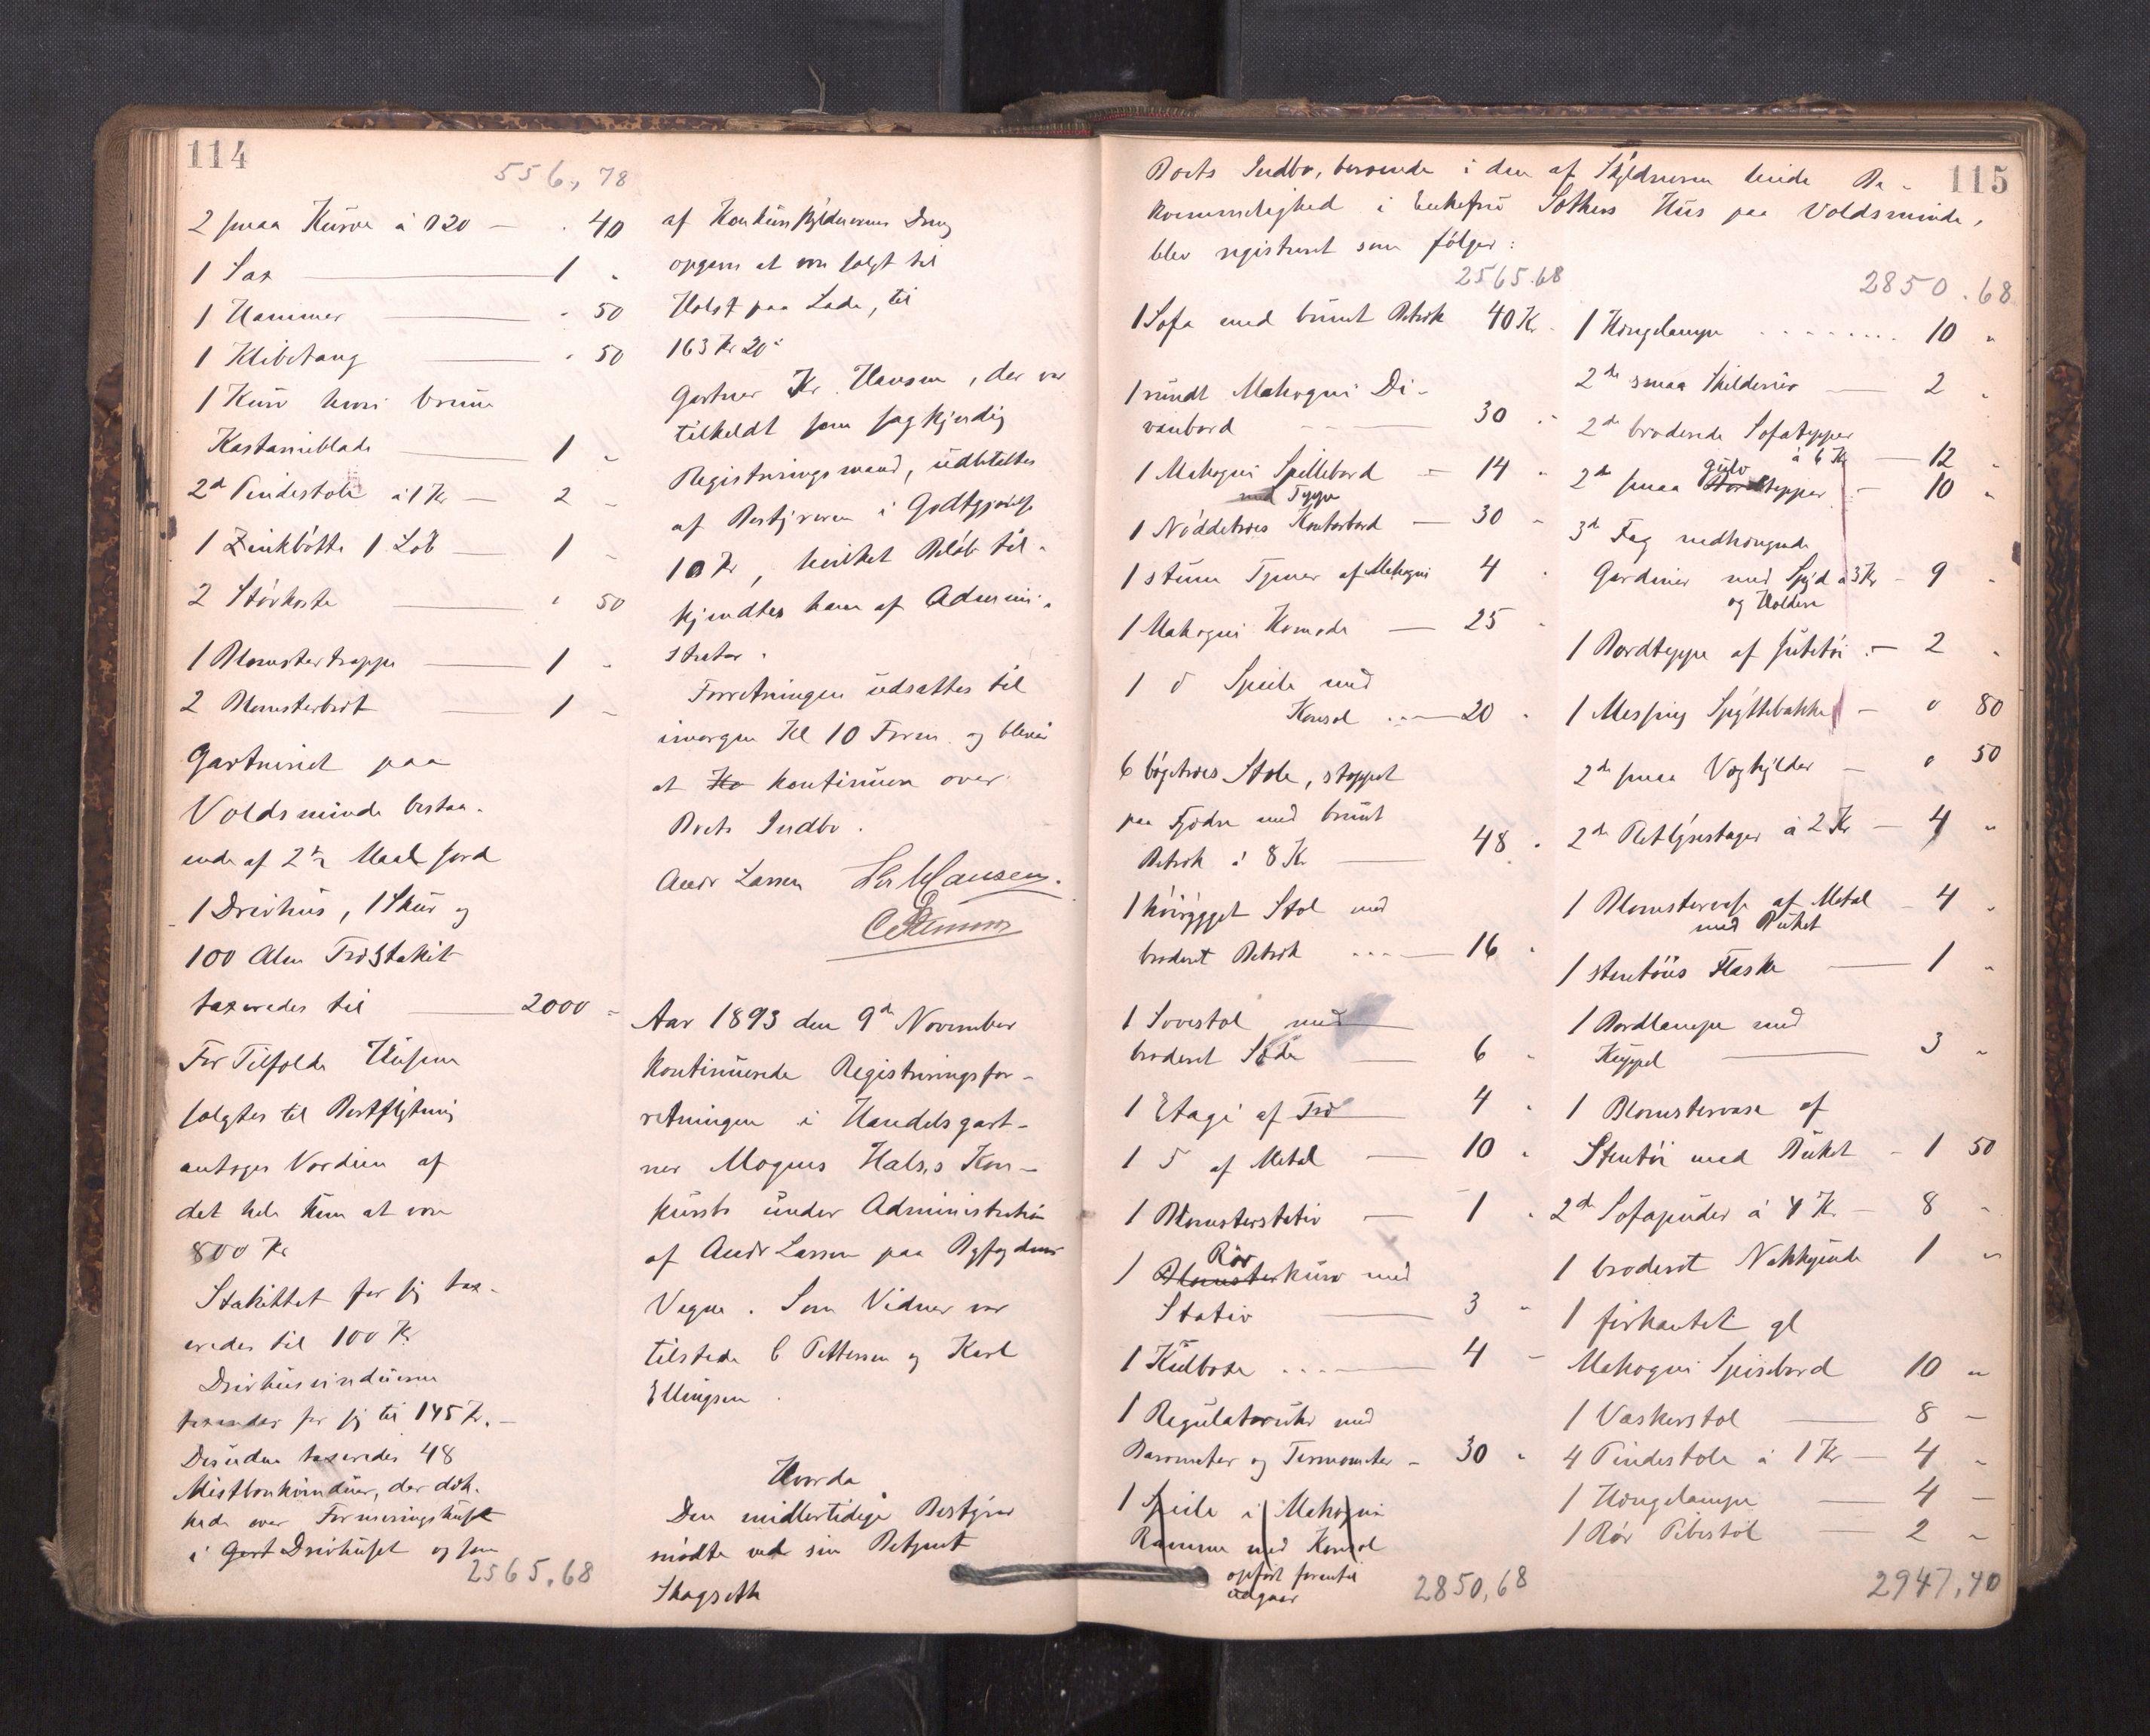 114
556,78
2 smaa Kurve à 020 — . 40
1 Sax — 1 "
1 Hammer — " 50
1 Knibetang — " 50
1 Kurv hvori brune
Kastanieblade — 1 "
2de Pindestole à 1 Kr — 2 "
1 Zinkbøtte 1 Løb — 1 "
2 Støvkoste — " 50
1 Blomstertrappe — 1 "
2 Blomsterbret — 1 "
Gartneriet paa
Voldsminde bestaa-
ende af 2½ Maal Jord
1 Drivhus, 1 Skur og
100 Alen Træstakit
taxeredes til — 2000 "
For Tilfælde Husene
solgtes til Bortflytning
antoges Værdien af
det hele kun at være
800 Kr
Stakittet for sig tax-
eredes til 100 Kr
Drivhusvinduerne
taxeredes for sig til 145 Kr. —
Desuden taxeredes 48
Mistbænkvinduer, der dæk-
kede over Formeringshuset
i Gart Drivhuset og som
2565,68
af Konkursskyldnerens Dreng
opgaves at være solgt til
Holst paa Lade, til
163 Kr 20 "
Gartner Kr. Hansen, der var
tilkaldt som sagkyndig
Registreringsmand, udbetaltes
af Bestyreren i Godtgjørelse
10 Kr, hvilket Beløb til-
kjendtes ham af Admini-
strator.
Forretningen udsattes til
imorgen Kl 10 Form. og bliver
at Ko kontinuere over
Boets Indbo.
Andr Larsen Kr Hansen.
Aar 1893 den 9de November
kontinuerede Registreringsfor-
retningen i Handelsgart-
ner Mogens Halses Kon-
kursbo under Administration
af Andr Larsen paa Byfogdens
Vegne. Som Vidner var
tilstede C Pettersen og Karl
Ellingsen.
Hvorda
Den midlertidige Bestyrer
mødte ved sin Betjent
Skogseth
115
Boets Indbo, beroende i den af Skyldneren leiede Be-
kvemmelighed i Enkefru Sothers Hus paa Voldsminde,
blev registreret som følger:
2565.68
1 Sofa med brunt Betræk 40 Kr "
1 rundt Mahogni Di-
vanbord — 30 "
1 Mahogni Spillebord — 14 "
med Teppe
1 Nøddetræes Kontorbord — 30 "
1 stum Tjener af Mahogni 4 "
1 Mahogni Komode — 25 "
1 do Speile med
Konsol — 20 "
6 bøgetræes Stole, stoppet
paa Fjædre med brunt
Betræk à 8 Kr — 48 "
1 høirygget Stol med
broderet Betræk — 16 "
1 Lovestol med
broderet Sæde — 6 "
1 Etage af Træ 4 "
1 do af Metal — 10 "
1 Blomsterstativ — 1 "
Rør
1 Blomsterkurv med
Stativ — 3 "
1 Kulbox — 4 "
1 Regulatoruhr med
Barometer og Termometer — 30 "
1 Speile i Mahogni
Ramme med Konsol
opført forentil
udgaar
2850,68
2850.68
1 Hængelampe . . . . . . . . 10 "
2de smaa Skilderier — 2 "
2de broderede Sofatepper
à 6 Kr — 12 "
gulv
2de smaa Bordtepper — 10 "
3de Fag nedhængende
Gardiner med Spyd à 3 Kr — 9 "
og Holdere
1 Bordteppe af Jutetøi — 2 "
1 Messing Spyttebakke — " 80
2de smaa Væghylder — " 50
2de Pletlysestager à 2 Kr — 4 "
1 Blomstervase af Metal — 4 "
med Buket
1 stentøis Flaske — 1 "
1 Bordlampe med
Kuppel — 3 "
1 Blomstervase af
Stentøi med Buket — 1 50
2de Sofapuder à 4 Kr — 8 "
1 broderet Nakkepude 1 "
1 firkantet gl
Mahogni Spisebord 10 "
1 Vaskerstol — 8 —
4 Pindestole à 1 Kr — 4 "
1 Hængelampe — 4 —
1 Rør Pibestol — 2 "
2947,40